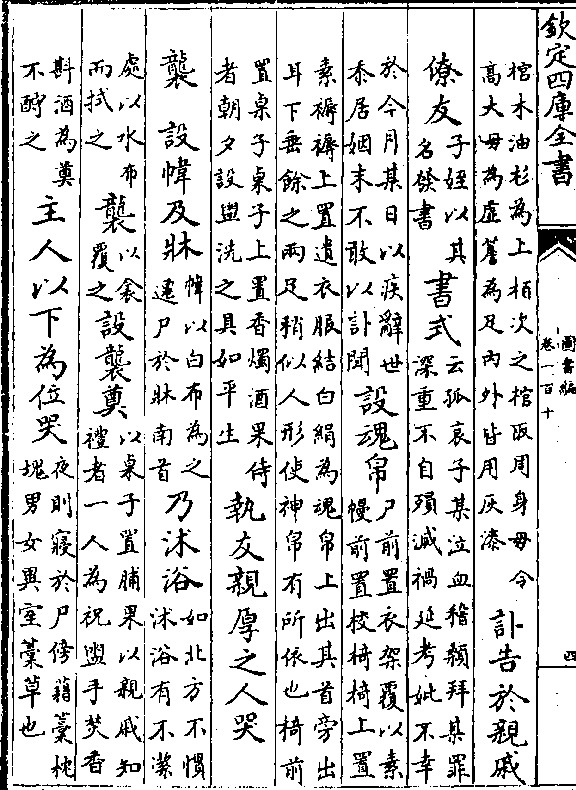 欽定四庫全書
圖書編
卷一百十
四
棺木油杉為上栢次之棺取周身毋令
高大毋為虛簷為足內外皆用灰漆
訃告於親戚
僚友
子姪以其
名發書
書式
云孤哀子某泣血稽顙拜某罪
深重不自殞滅禍延考妣不幸
於今月某日以疾辭世
忝居姻末不敢以訃聞
設魂帛
尸前置衣架覆以素
幔前置校椅椅上置
素褥褥上置遺衣服結白絹為魂帛上出其首旁出
耳下垂餘之兩足稍似人形使神帛有所依也椅前
置桌子桌子上置香燭酒果侍
者朝夕設盥洗之具如平生
執友親厚之人哭
襲 設幃及牀
幃以白布為之
遷尸於牀南首
乃沐浴
如北方不慣
沐浴有不潔
處以水布
而拭之
襲
以衾
覆之
設襲奠
以桌子置脯果以親戚知
禮者一人為祝盥手焚香
斟酒為奠
不酹之
主人以下為位哭
夜則寢於尸傍藉藁枕
塊男女異室藁草也